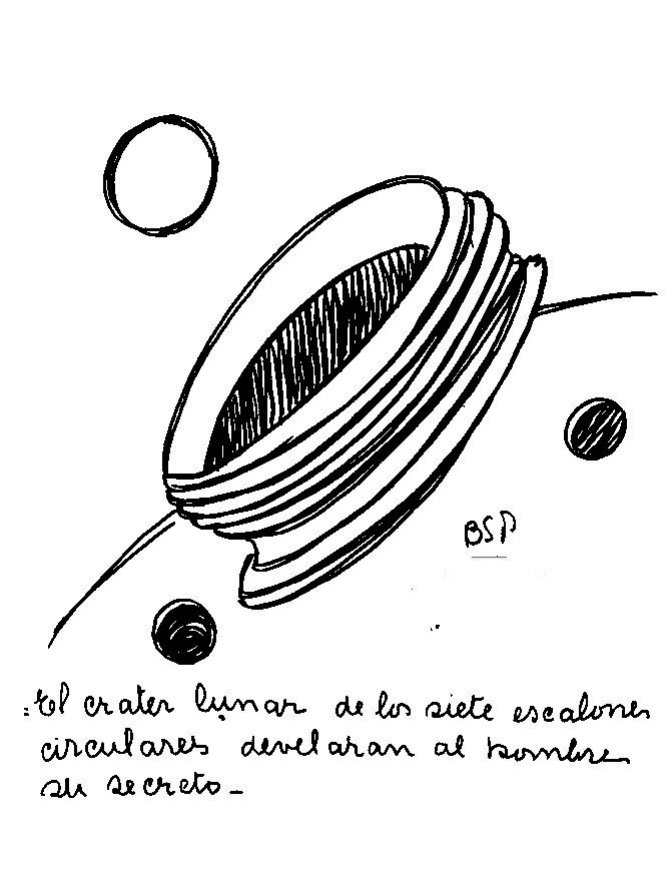 BSP
:El crater lunar de los siete escalones
circulares develaran al hombre
su secreto_